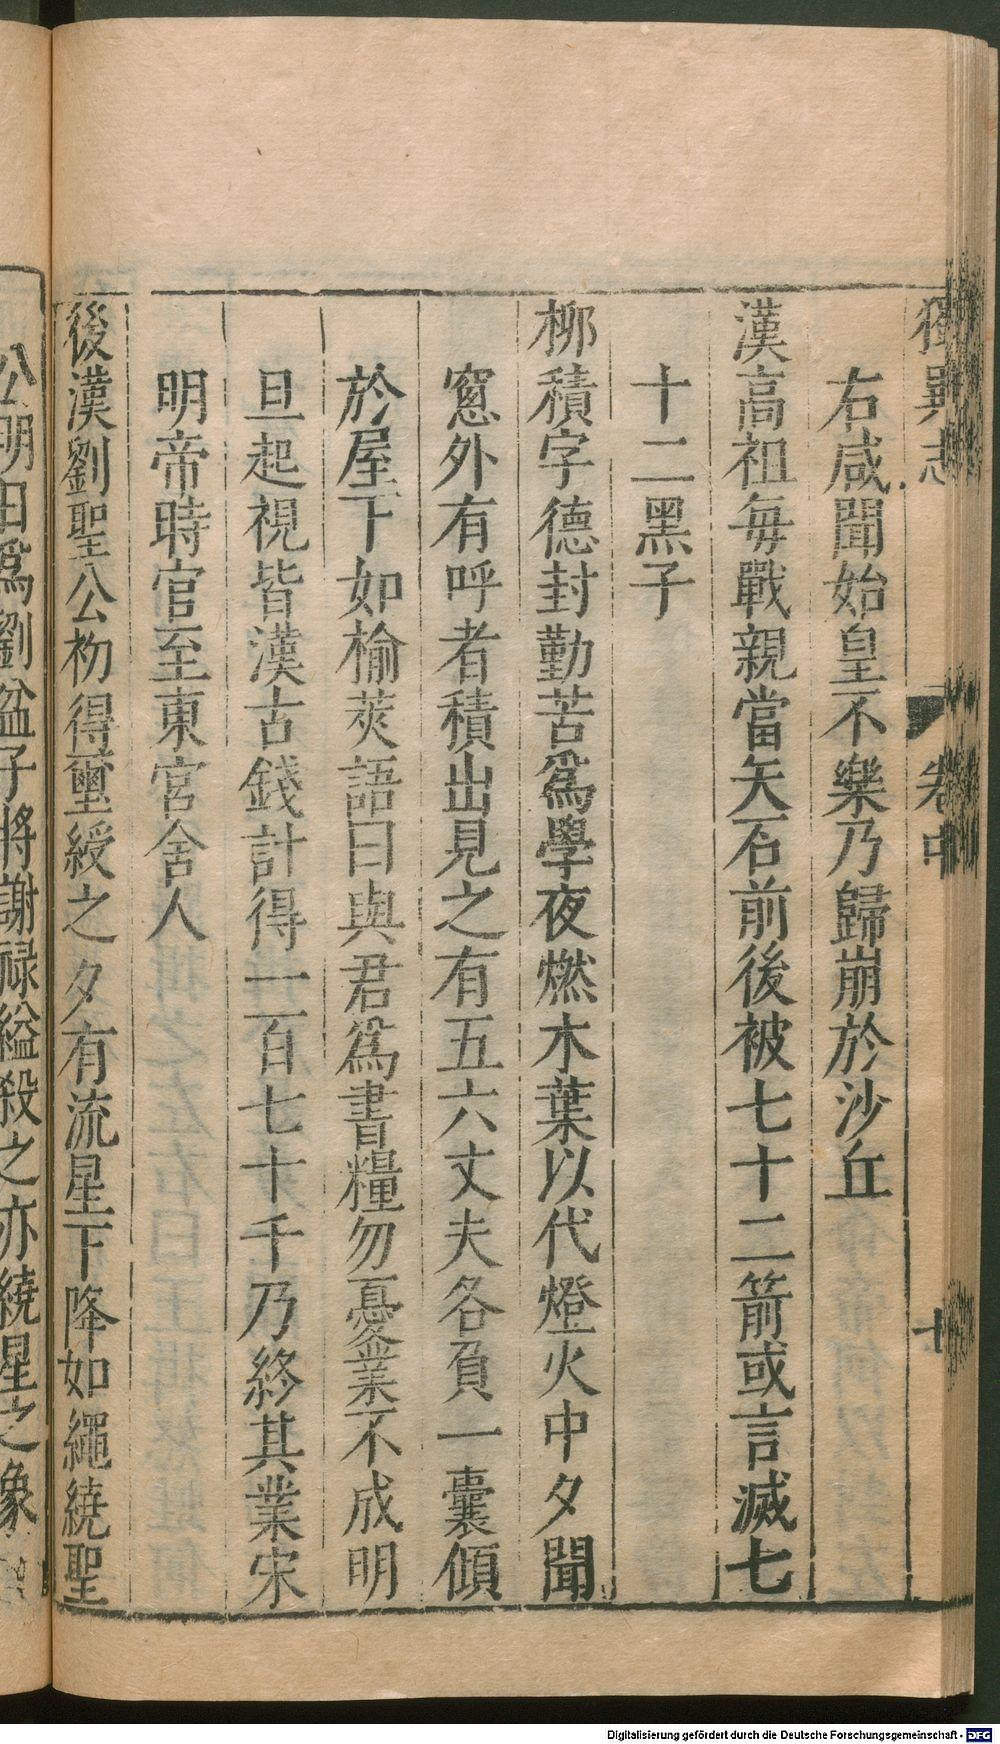 獨異志 卷中 十
右咸聞始皇不樂乃歸崩於沙丘
漢高祖每戰親當矢石前後被七十二箭或言滅七
十二黑子
柳積字德封勤苦爲學夜燃木葉以代燈火中夕聞
窓外有呼者積出見之有五六丈夫各負一囊傾
於屋下如榆莢語曰與君爲書糧勿憂業不成明
旦起視皆漢古錢計得一百七十千乃終其業宋
明帝時官至東宮舍人
後漢劉聖公初得璽綬之夕有流星下降如繩繞聖
公明日爲劉盆子將謝祿縊殺之亦繞星之象
Digitalisierung gefördert durch die Deutsche Forschungsgemeinschaft - DFG